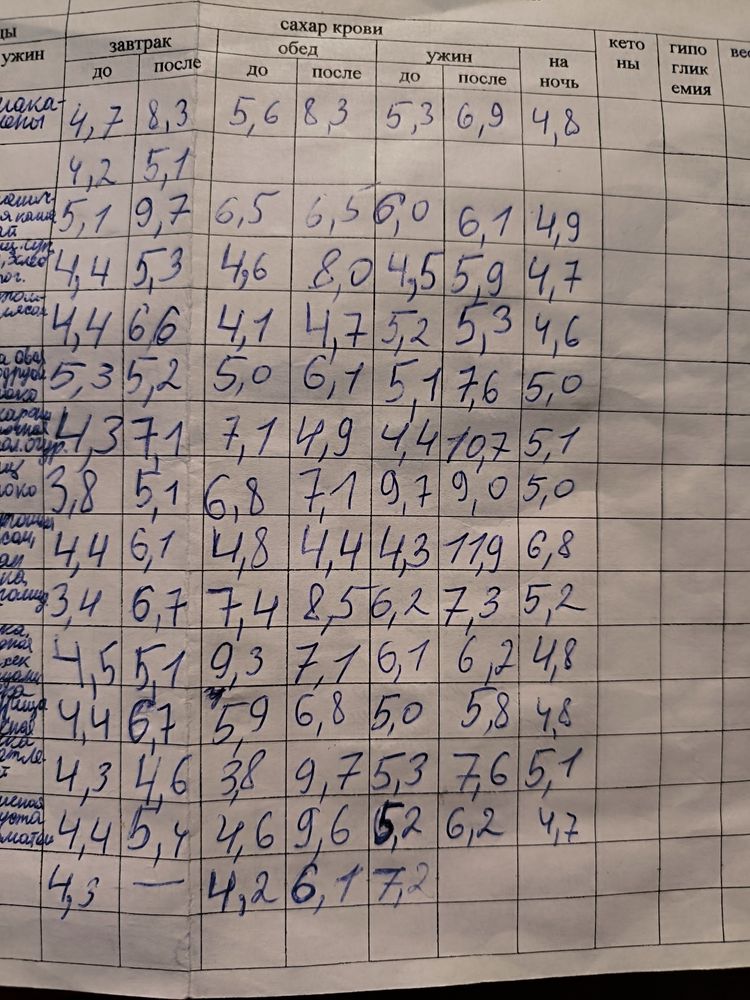 сахар крови
ужин завтрак обед ужин на ночь кетоны гипогликемия вес
до после до после до после
4,7 8,3 5,6 8,3 5,3 6,9 4,8
4,2 5,1
5,1 9,7 6,5 6,5 6,0 6,1 4,9
4,4 5,3 4,6 8,0 4,5 5,9 4,7
4,4 6,6 4,1 4,7 5,2 5,3 4,6
5,3 5,2 5,0 6,1 5,1 7,6 5,0
4,3 7,1 7,1 4,9 4,4 10,7 5,1
3,8 5,1 6,8 7,1 9,7 9,0 5,0
4,4 6,1 4,8 4,4 4,3 11,9 6,8
3,4 6,7 7,4 8,5 6,2 7,3 5,2
4,5 5,1 9,3 7,1 6,1 6,2 4,8
4,4 6,7 5,9 6,8 5,0 5,8 4,8
4,3 4,6 3,8 9,7 5,3 7,6 5,1
4,4 5,4 4,6 9,6 5,2 6,2 4,7
4,3 — 4,2 6,1 7,2